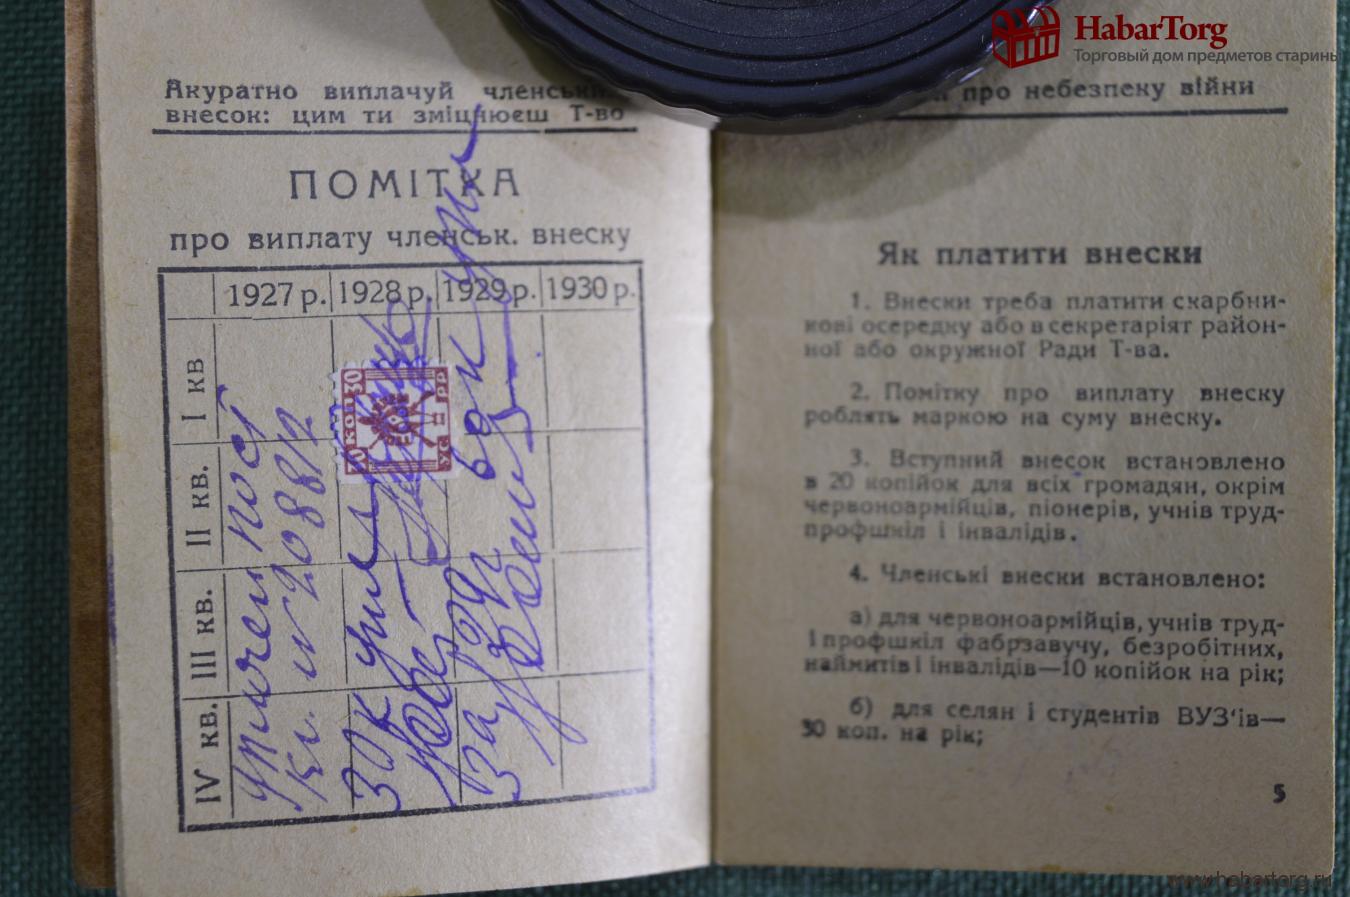 HabarTorg
Торговый дом предметов старины
Акуратно виплачуй членський
внесок: цим ти зміцнюєш Т-во
ПОМІТКА
про виплату членськ. внеску
1927 р. 1928 р. 1929 р. 1930 р.
I кв
II кв.
III кв.
IV кв.
30 коп
УС РР
30 к
60 к
за
про небезпеку війни
Як платити внески
1. Внески треба платити скарбни-
кові осередку або в секретаріят район-
ної або окружної Ради Т-ва.
2. Помітку про виплату внеску
роблять маркою на суму внеску.
3. Вступний внесок встановлено
в 20 копійок для всіх громадян, окрім
червоноармійців, піонерів, учнів труд-
профшкіл і інвалідів.
4. Членські внески встановлено:
а) для червоноармійців, учнів труд-
і профшкіл фабрзавучу, безробітних,
наймитів і інвалідів—10 копійок на рік;
б) для селян і студентів ВУЗ'ів—
30 коп. на рік;
5
www.habartorg.ru